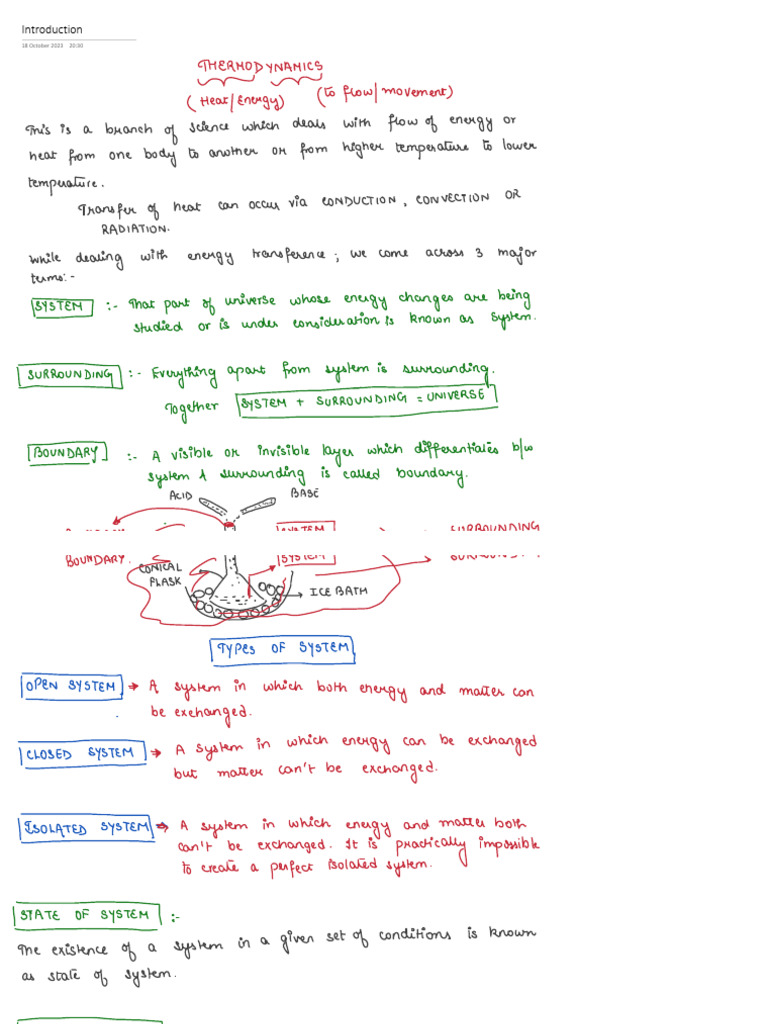 Introduction
18 October 2023 20:30
THERMODYNAMICS
(Heat/Energy) (to flow/movement)
This is a branch of science which deals with flow of energy or
heat from one body to another or from higher temperature to lower
temperature.
Transfer of heat can occur via CONDUCTION, CONVECTION OR
RADIATION.
While dealing with energy transference; we come across 3 major
terms:-
SYSTEM :- That part of universe whose energy changes are being
studied or is under consideration is known as system.
SURROUNDING :- Everything apart from system is surrounding.
Together SYSTEM + SURROUNDING = UNIVERSE
BOUNDARY :- A visible or invisible layer which differentiates b/w
system & surrounding is called boundary.
ACID BASE
SYSTEM SURROUNDING
BOUNDARY SYSTEM
CONICAL
FLASK
ICE BATH
TYPES OF SYSTEM
OPEN SYSTEM → A system in which both energy and matter can
be exchanged.
CLOSED SYSTEM → A system in which energy can be exchanged
but matter can't be exchanged.
ISOLATED SYSTEM → A system in which energy and matter both
can't be exchanged. It is practically impossible
to create a perfect isolated system.
STATE OF SYSTEM :-
The existence of a system in a given set of conditions is known
as state of system.